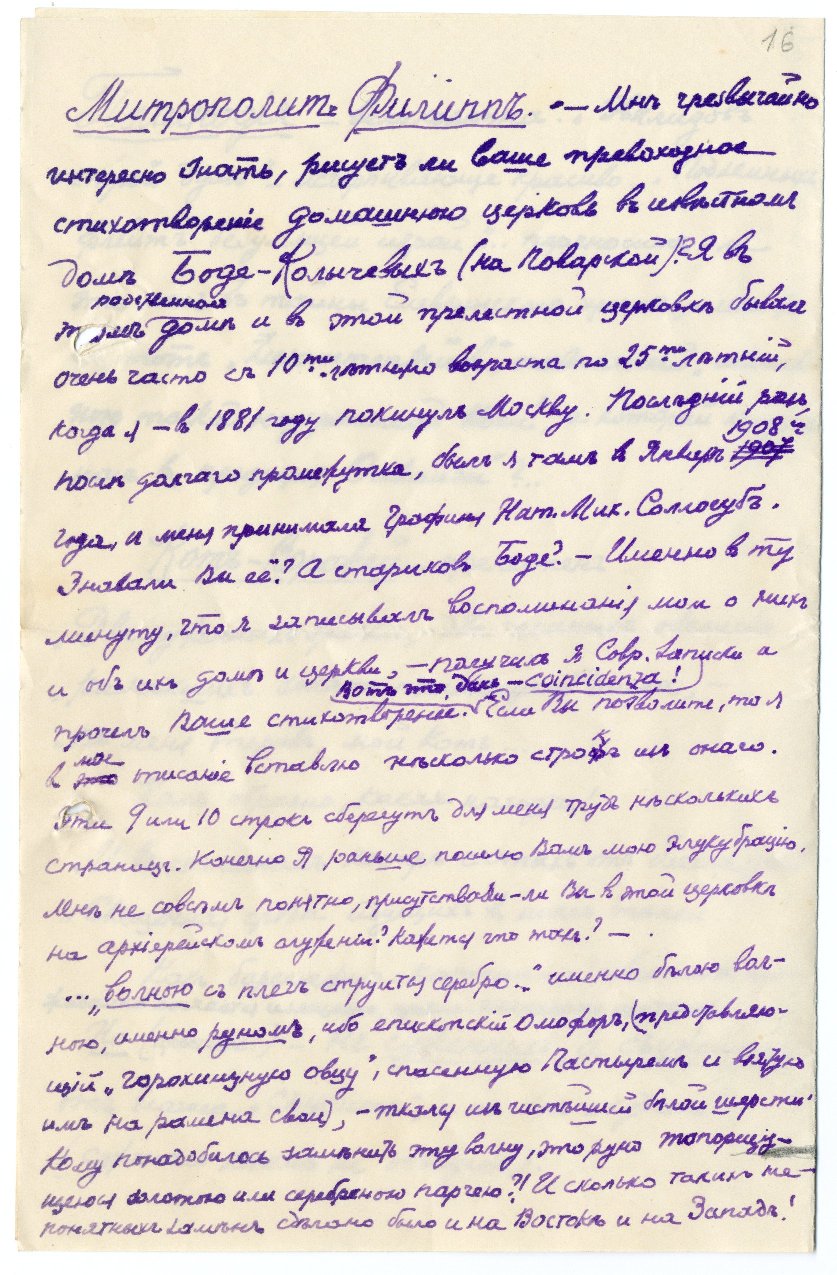 16
Митрополитъ Филиппъ. — Мнѣ чрезвычайно
интересно знать, рисуетъ ли ваше превоходное
стихотворенiе домашнюю церковь въ извѣстномъ
домѣ Боде-Колычевыхъ (на Поварской)? Я въ
этомъ родственномъ домѣ и въ этой прелестной церковкѣ бывалъ
очень часто съ 10ти-лѣтняго возраста по 25ти-лѣтнiй,
когда я — въ 1881 году покинулъ Москву. Послѣднiй разъ,
послѣ долгаго промежутка, былъ я тамъ въ Январѣ 1907 1908 г
года, и меня принимала Графиня Нат. Мих. Соллогубъ.
Знавали Вы её? А стариковъ Боде? — Именно въ ту
минуту, что я записывалъ воспоминанiя мои о нихъ
и объ ихъ домѣ и церкви, — получилъ я Совр. Записки и
Вотъ это, какъ — coincidenza!
прочелъ Ваше стихотворенiе. Если Вы позволите, то я
въ это мое описанiе вставлю нѣсколько строфъ изъ онаго.
Эти 9 или 10 строкъ сберегутъ для меня трудъ нѣсколькихъ
страницъ. Конечно я раньше пошлю Вамъ мою элукубрацiю.
Мнѣ не совсѣмъ понятно, присутствовали-ли Вы въ этой церковкѣ
на архiерейскомъ служенiи? Кажется что такъ? —.
... „волною съ плечъ струится серебро..“ именно бѣлою вол-
ною, именно руномъ, ибо епископскiй Омофоръ, (представляю-
щiй „горохищную овцу“, спасенную Пастыремъ и взятую
имъ на рамена свои), — ткался изъ чистѣйшей бѣлой шерсти!
Кому понадобилось замѣнить эту волну, это руно топорщу-
щеюся золотою или серебреною парчею?! И сколько такихъ не-
понятныхъ замѣнъ сдѣлано было и на Востокѣ и на Западѣ!